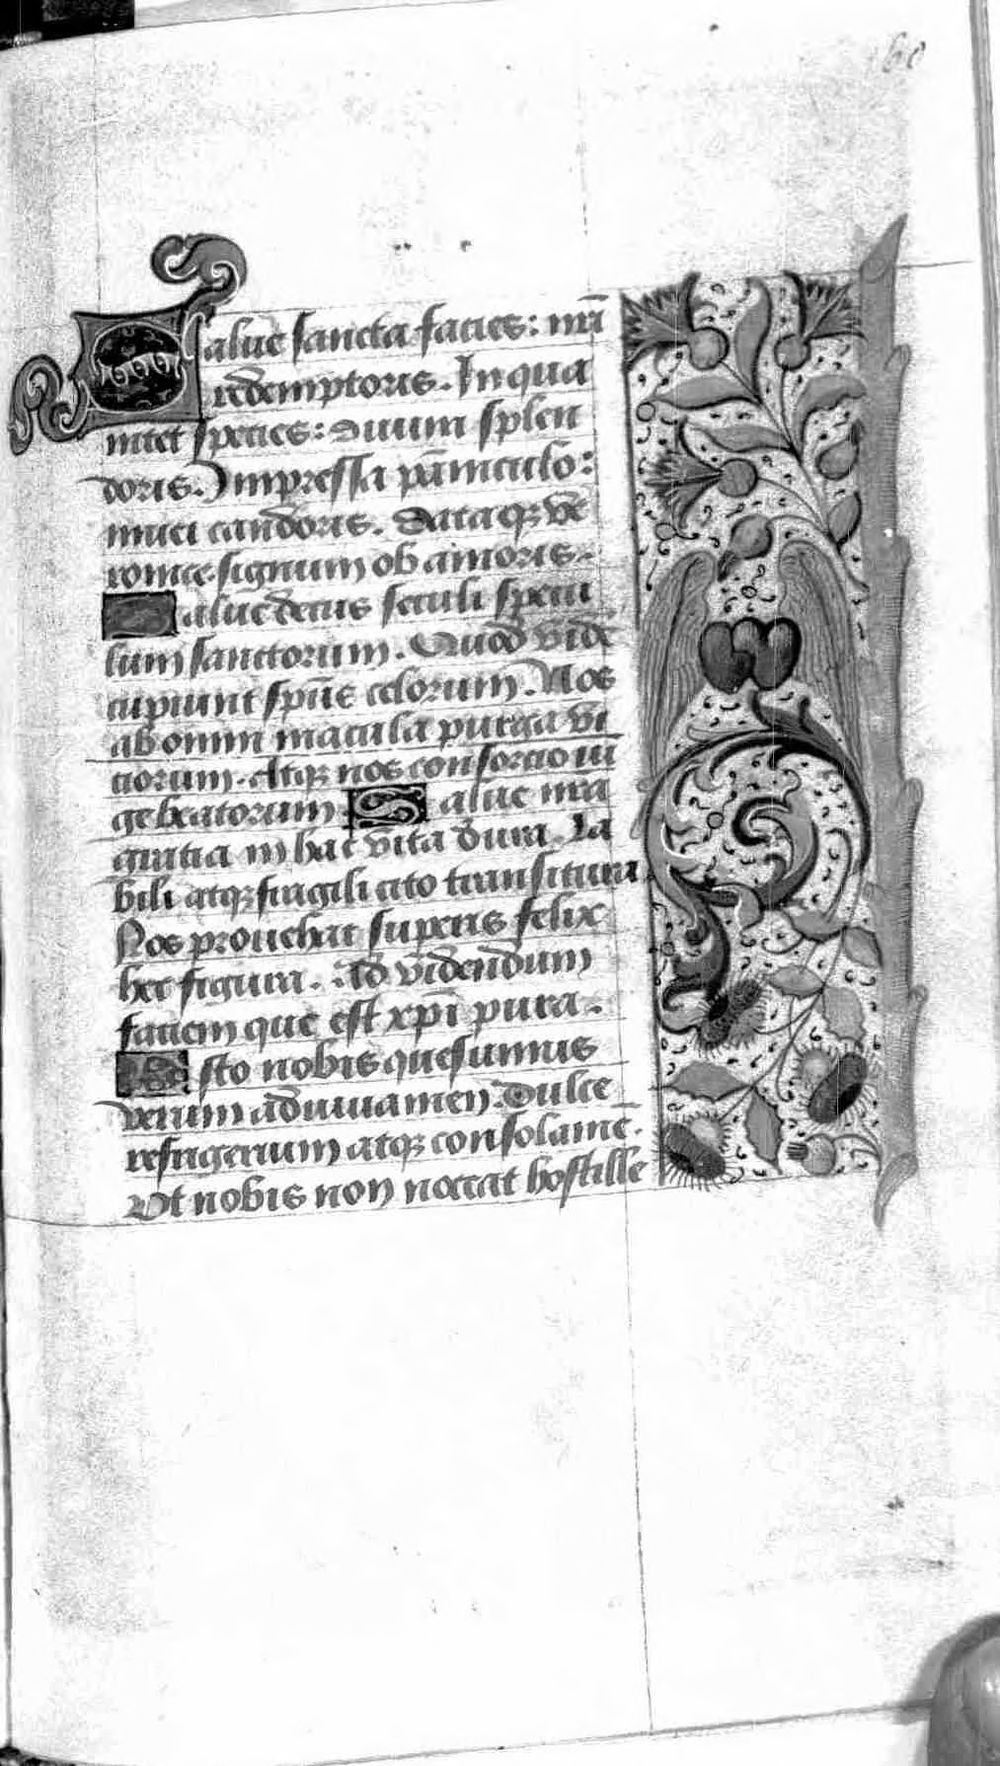 160
Salue sancta facies: nr̄i
redemptoris. In qua
nitet species: diuini splen
doris. Impressa pāniculo:
niuei candoris. Dataqꝫ ve
ronice signum ob amoris.
Salue decus seculi specu
lum sanctorum. Quod vide
cupiunt spūs celorum. Nos
ab omni macula purga vi
ciorum. Atqꝫ nos consorcio iu
ge beatorum. Salue nr̄a
gratia in hac vita dura. La
bili atqꝫ fragili cito transitura
Nos prouehat superis felix
hec figura. Ad videndum
faciem que est xp̄i pura.
Esto nobis quesumus
verum adiuuamen. Dulce
refrigerium atqꝫ consolamē.
Ut nobis non noceat hostille